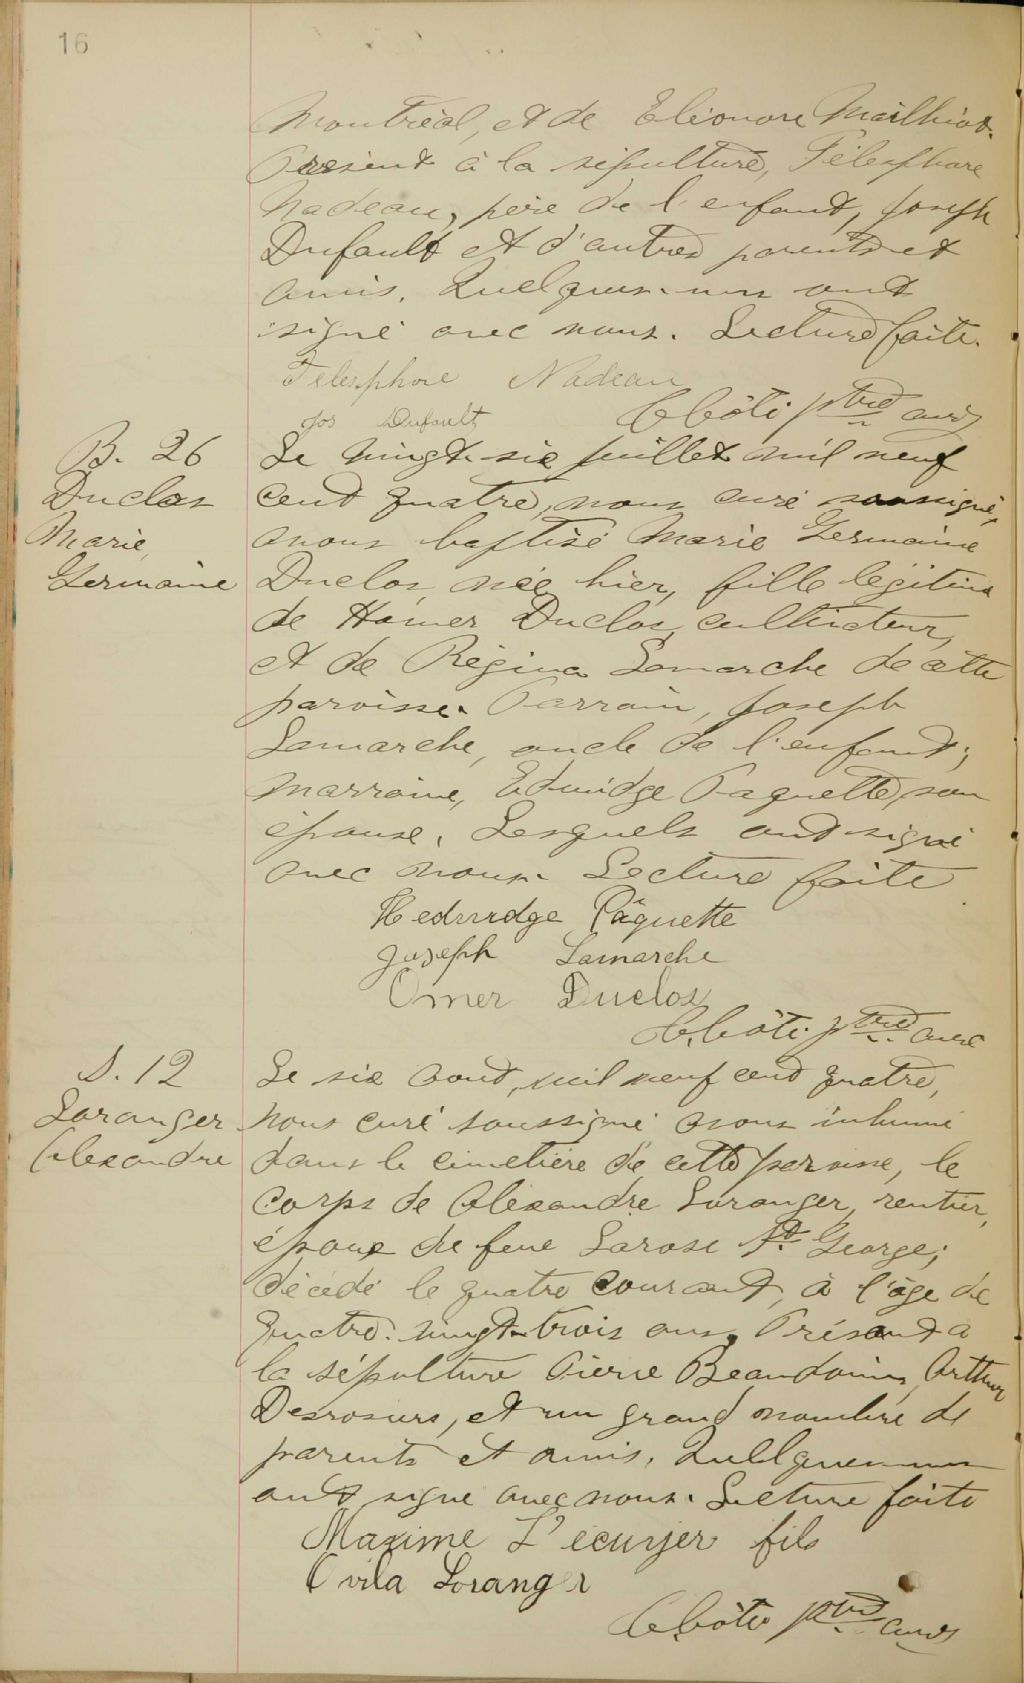 16
Montréal, et de Eléonore Mailhiot.
Présent à la sépulture, Télesphore
Nadeau, père de l'enfant, Joseph
Dufault et d'autres parents et
amis. Quelques-uns ont
signé avec nous. Lecture faite.
Télesphore Nadeau
Jos Dufault
Côté ptre curé
B. 26
Duclos
Marie
Germaine
Le vingt-six juillet mil neuf
cent quatre, nous curé soussigné,
avons baptisé Marie Germaine
Duclos, née hier, fille légitime
de Homer Duclos, cultivateur,
et de Régina Lamarche de cette
paroisse. Parrain, Joseph
Lamarche, oncle de l'enfant;
marraine, Edwidge Paquette, son
épouse. Lesquels ont signé
avec nous. Lecture faite
Hedwidge Pâquette
Joseph Lamarche
Omer Duclos
Côté ptre curé
S. 12
Loranger
Alexandre
Le six aout, mil neuf cent quatre,
nous curé soussigné avons inhumé
dans le cimetière de cette paroisse, le
corps de Alexandre Loranger, rentier,
époux de feue Larose St. George;
décédé le quatre courant, à l'âge de
quatre-vingt-trois ans. Présent à
la sépulture Pierre Beaudoin, Arthur
Desrosiers, et un grand nombre de
parents et amis. Quelques-uns
ont signé avec nous. Lecture faite
Maxime L'écuyer fils
Ovila Loranger
Côté ptre curé